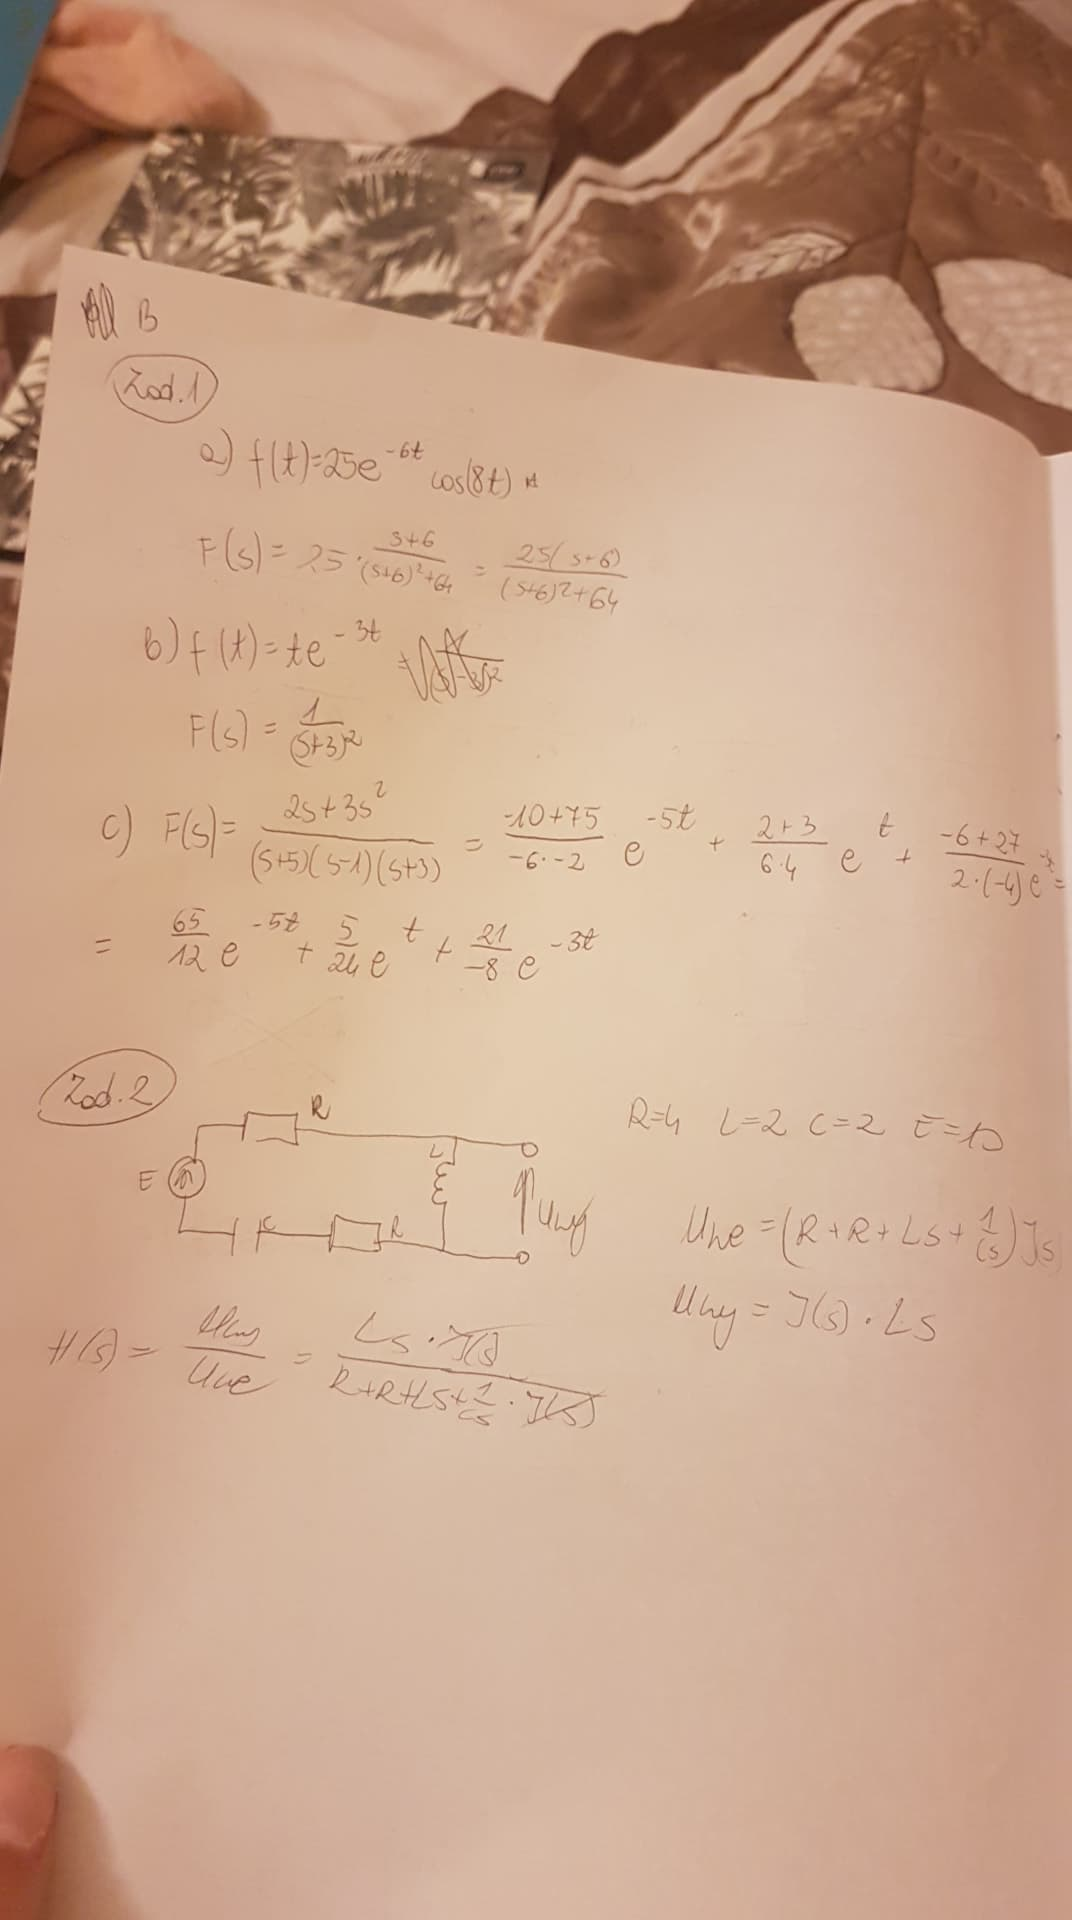 B
Zad.1
a) f(t)=25e^{-6t} cos(8t)
F(s) = 25 · \frac{s+6}{(s+6)^2+64} = \frac{25(s+6)}{(s+6)^2+64}
b) f(t)=te^{-3t}
F(s) = \frac{1}{(s+3)^2}
c) F(s)= \frac{2s+3s^2}{(s+5)(s-1)(s+3)} = \frac{-10+75}{-6·-2} e^{-5t} + \frac{2+3}{6·4} e^{t} + \frac{-6+27}{2·(-4)} e =
= \frac{65}{12} e^{-5t} + \frac{5}{24} e^{t} + \frac{21}{-8} e^{-3t}
Zad.2
R
R=4 L=2 C=2 E=10
E L Uwy
C R
Uwe = (R+R+Ls+\frac{1}{Cs}) Is
Uwy = I(s) · Ls
H(s) = \frac{Uwy}{Uwe} = \frac{Ls · I(s)}{R+R+Ls+\frac{1}{Cs} · I(s)}